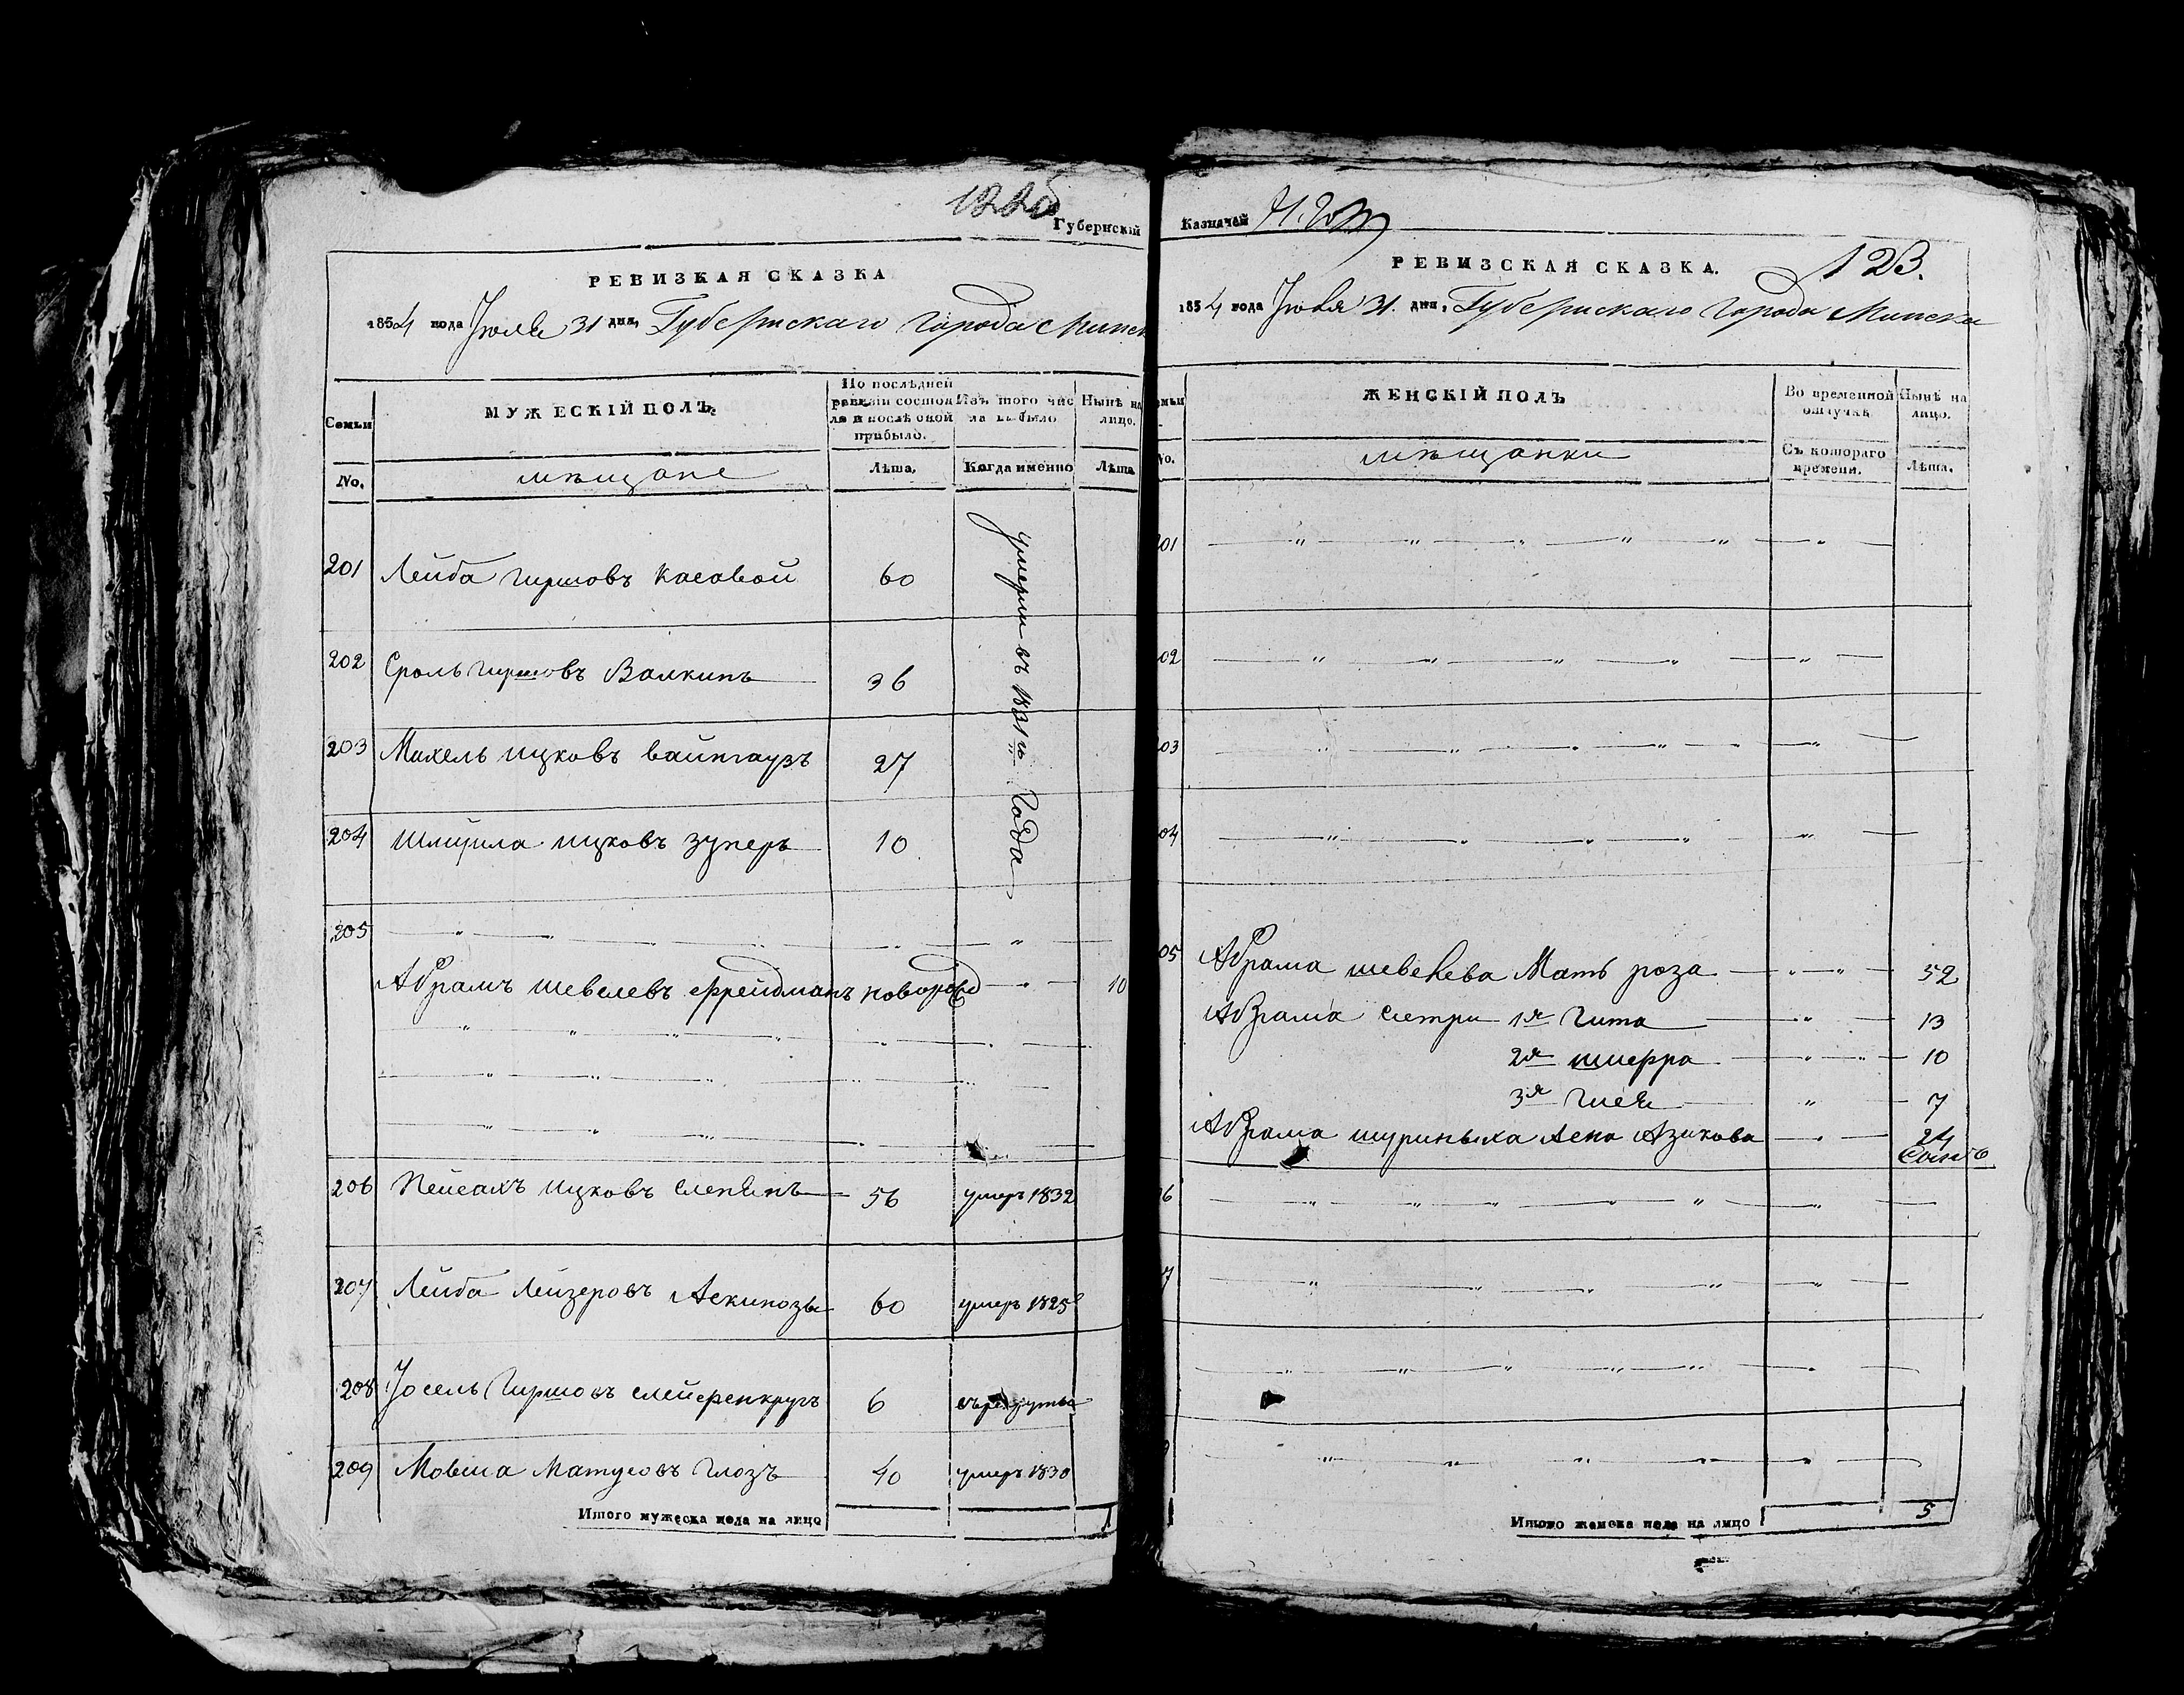 122б
Губернскій
РЕВИЗКАЯ СКАЗКА
1834 года Іюля 31 дня, Губернскаго города Минск
Семьи
МУЖЕСКІЙ ПОЛЪ.
По послѣдней ревизіи состояло и послѣ оной прибыло.
Изъ того числа выбыло
Нынѣ на лицо.
No.
мѣщане
Лѣта.
Когда именно
Лѣта
201 Лейба Гиршовъ Косовой 60
умерли въ 1831мъ года
202 Сроль Гиршовъ Валкинъ 36
203 Михель Ицковъ Вайнгаузъ 27
204 Ицковъ Зуперъ 10
205
Абрамъ Шевелевъ Фрейдманъ новорожд 10
206 Пейсахъ Ицковъ Слепянъ 56 умеръ 1832
207 Лейба Лейзеровъ Аскинозы 60 умеръ 1825
208 Іосель Гиршовъ 6
209 Мовша Матусовъ Глозъ 40 умеръ 1830
Итого мужеска пола на лицо 1
Казначей
123.
РЕВИЗСКАЯ СКАЗКА.
1834 года Іюля 31. дня, Губернскаго города Минска
ЖЕНСКІЙ ПОЛЪ
Во временной отлучкѣ
Нынѣ на лицо.
No.
мѣщанки
Съ котораго времени.
Лѣта.
01
02
03
04
05 Абрама Шевелева Мать Роза 52
Абрама сестры 1я Гита 13
2я Шифра 10
3я 7
Абрама Азикова 24
6
7
Итого женска пола на лицо 5